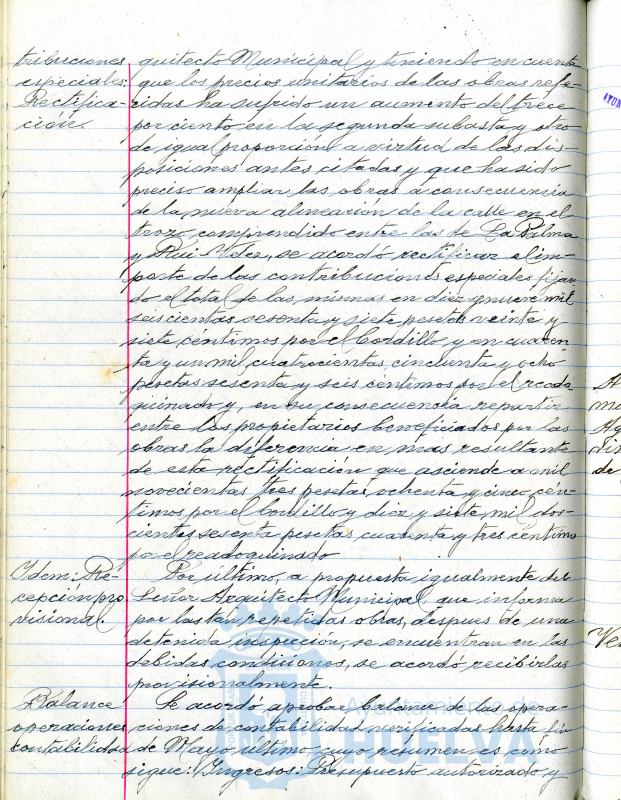 tribuciones
especiales:
Rectifica-
ción.
quitecto Municipal y teniendo en cuenta
que los precios unitarios de las obras refe-
ridas ha sufrido un aumento del trece
por ciento en la segunda subasta y otro
de igual proporción a virtud de las dis-
posiciones antes citadas y que ha sido
preciso ampliar las obras a consecuencia
de la nueva alineación de la calle en el
trozo comprendido entre las de La Palma
y Rui Velez, se acordó rectificar el im-
porte de las contribuciones especiales fijan-
do el total de las mismas en diez y nueve mil
seiscientas sesenta y siete pesetas veinte y
siete céntimos por el bordillo y en cuaren-
ta y un mil cuatrocientas cincuenta y ocho
pesetas sesenta y seis céntimos por el readо-
quinado y, en su consecuencia repartir
entre los propietarios beneficiados por las
obras la diferencia en mas resultante
de esta rectificación que asciende a mil
novecientas tres pesetas, ochenta y cinco cén-
timos por el bordillo y diez y siete mil dos-
cientas sesenta pesetas cuarenta y tres céntimos
por el readoquinado
Idem: Re-
cepción pro
visional.
Por último, a propuesta igualmente del
Señor Arquitecto Municipal que informa
por las tan repetidas obras, despues de una
detenida inspección, se encuentran en las
debidas condiciones, se acordó recibirlas
provisionalmente
Balance
operaciones
contabilidad
Se acordó aprobar balance de las opera-
ciones de contabilidad verificadas hasta fin
de Mayo último cuyo resumen es como
sigue: Ingresos: Presupuesto autorizado y
Ayuntamiento de
HUELVA